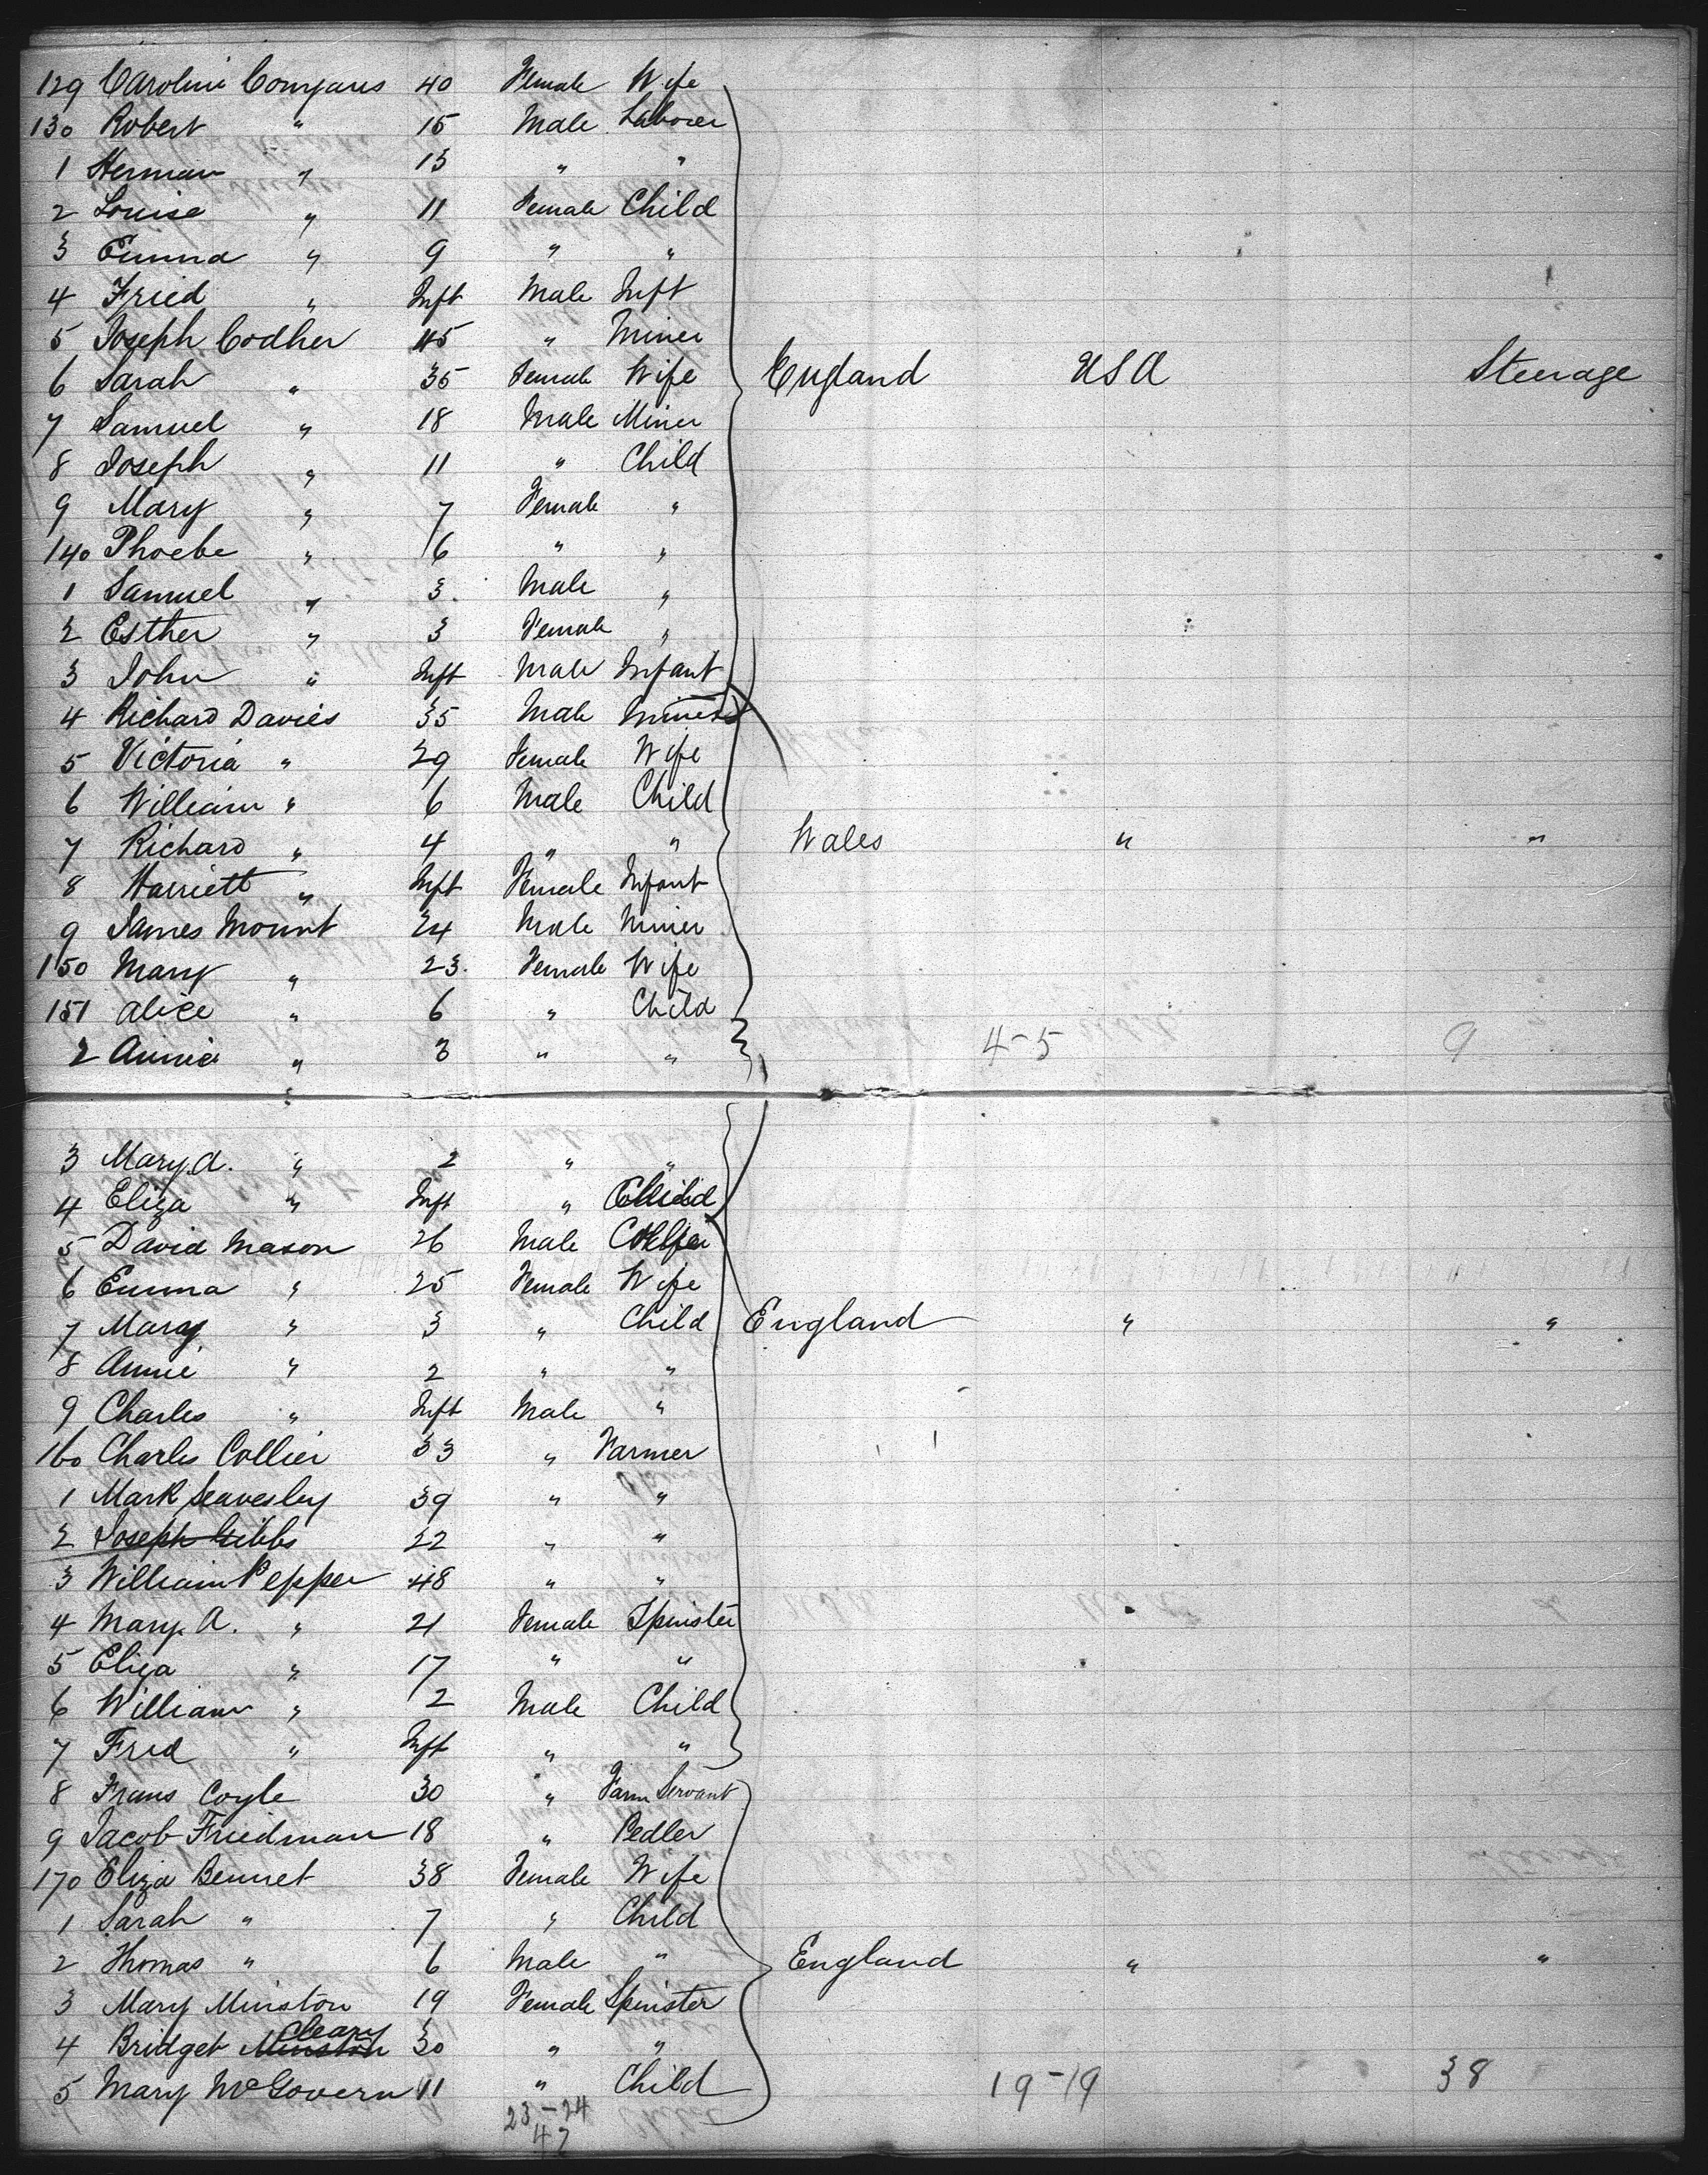 129 Caroline Compans 40 Female Wife
130 Robert " 15 Male Laborer
1 Herman " 13 " "
2 Louise " 11 Female Child
3 Emma " 9 " "
4 Fried " Inft Male Inft
5 Joseph Codher 45 " Miner
6 Sarah " 35 Female Wife England USA Steerage
7 Samuel " 18 Male Miner
8 Joseph " 11 " Child
9 Mary " 7 Female "
140 Phoebe " 6 " "
1 Samuel " 3 Male "
2 Esther " 3 Female "
3 John " Inft Male Infant
4 Richard Davies 35 Male Miner
5 Victoria " 29 Female Wife
6 William " 6 Male Child
7 Richard " 4 " " Wales " "
8 Harriett " Inft Female Infant
9 James Mount 24 Male Miner
150 Mary " 23. Female Wife
151 Alice " 6 " Child
2 Annie " 3 " " 4-5 9
3 Mary A. " 2 " "
4 Eliza " Inft " Child
5 David Mason 26 Male
6 Emma " 25 Female Wife
7 Mary " 3 " Child England " "
8 Annie " 2 " "
9 Charles " Inft Male "
160 Charles Collier 33 " Farmer
1 Mark Seavesley 39 " "
2 Joseph Gibbs 22 " "
3 William Pepper 48 " "
4 Mary A. " 21 Female Spinster
5 Eliza " 17 " "
6 William " 2 Male Child
7 Fred " Inft " "
8 Frans Coyle 30 " Farm Servant
9 Jacob Friedman 18 " Pedler
170 Eliza Bennet 38 Female Wife
1 Sarah " 7 " Child
2 Thomas " 6 Male " England " "
3 Mary Minston 19 Female Spinster
4 Bridget Minston Cleary 30 " "
5 Mary McGovern 11 " Child 19-19 38
23-24
47